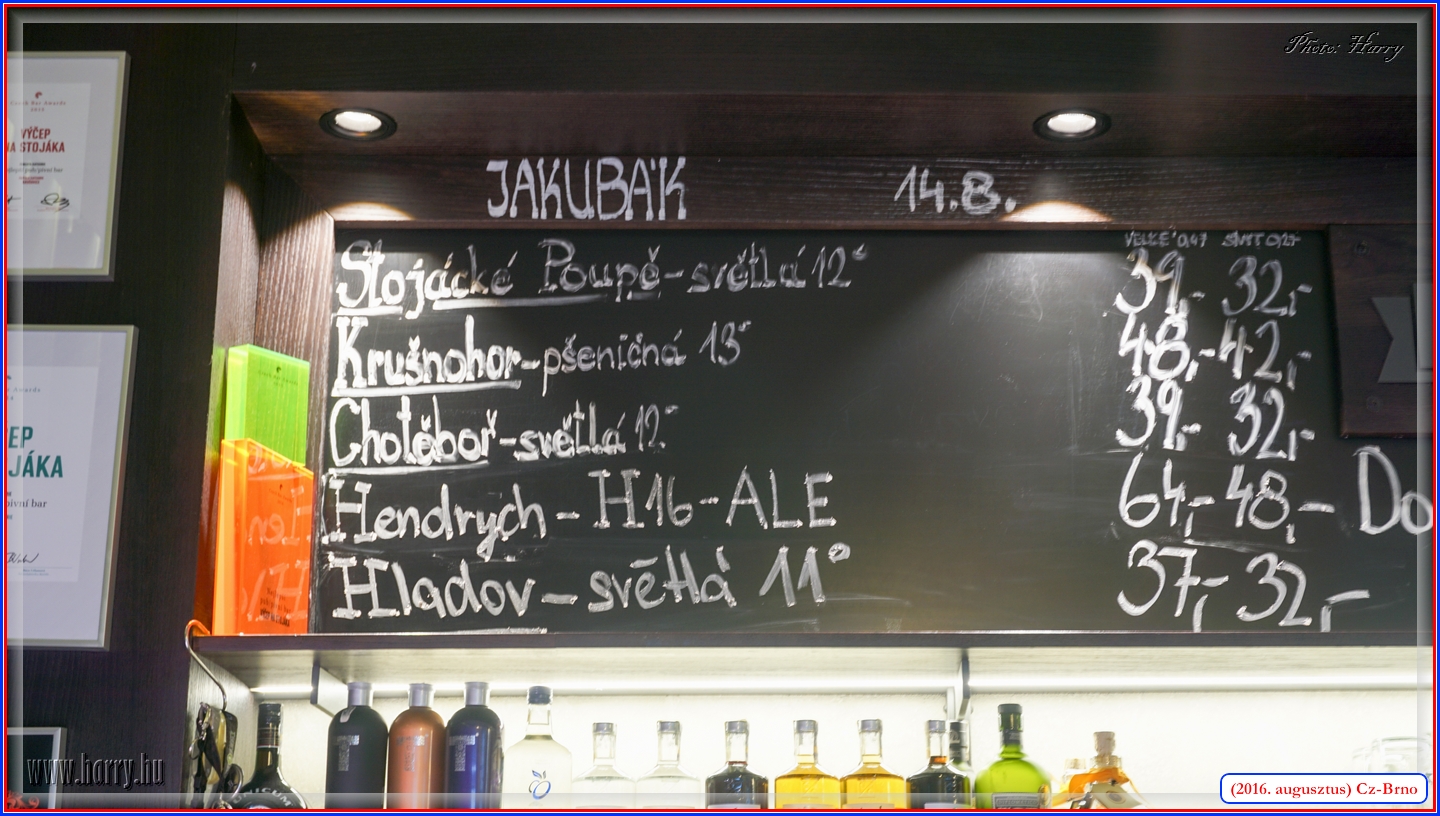 Photo: Harry
VÝČEP
NA STOJÁKA
JAKUBÁK 14.8.
VELKÉ 0,4 MALÉ 0,2
Stojácké Poupě-světlá 12° 39,- 32,-
Krušnohor-pšeničná 13° 48,- 42,-
Chotěboř-světlá 12° 39,- 32,-
Hendrych - H16-ALE 64,- 48,-
Do
Hladov - světlá 11° 37,- 32,-
EP
JÁKA
pivní bar
UNICUM
www.harry.hu
(2016. augusztus) Cz-Brno